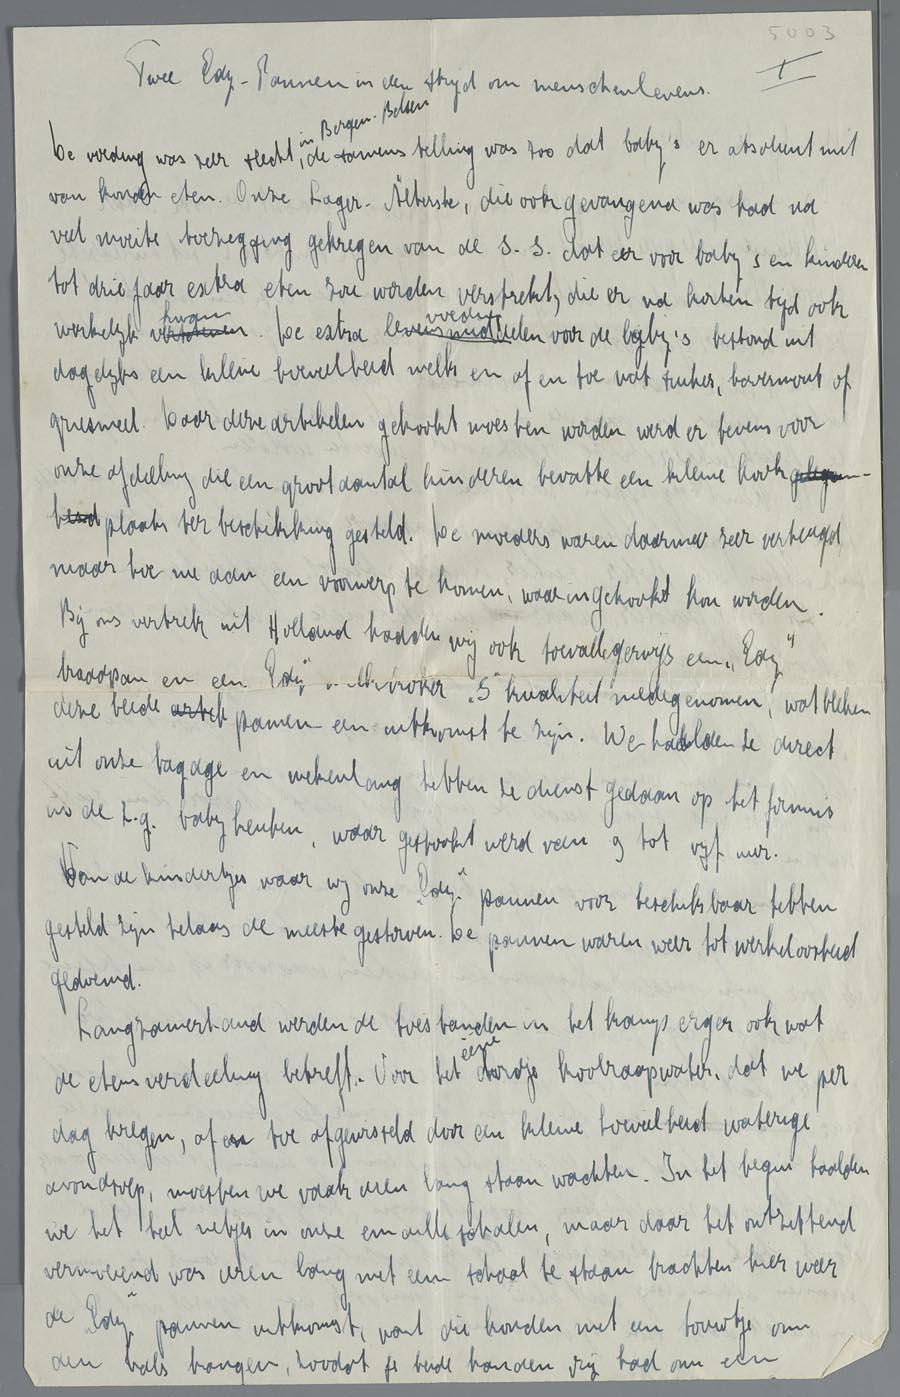 5003
I
Twee Edy-Pannen in den strijd om menschenlevens.
in Bergen-Belsen
De voeding was zeer slecht, de samenstelling was zoo dat baby's er absoluut niet
van konden eten. Onze Lager-Älterste, die ook gevangene was had na
veel moeite toezegging gekregen van de S.S. dat er voor baby's en kinderen
tot drie jaar extra eten zou worden verstrekt, die er na korten tijd ook
kwam voeding
werkelijk. De extra levensmiddelen voor de baby's bestond uit
dagelijks een kleine hoeveelheid melk en af en toe wat suiker, havermout of
griesmeel. Daar deze artikelen gekookt moesten worden werd er tevens voor
onze afdeling die een groot aantal kinderen bevatte een kleine kook
plaats ter beschikking gesteld. De moeders waren daarmee zeer verheugd
maar hoe nu aan een voorwerp te komen, waarin gekookt kon worden.
Bij ons vertrek uit Holland hadden wij ook toevalligerwijs een "Edy"
braadpan en een "Edy" melkkoker "S" kwaliteit medegenomen, wat bleken
deze beide pannen een uitkomst te zijn. We haalden ze direct
uit onze bagage en wekenlang hebben ze dienst gedaan op het fornuis
in de z.g. babykeuken, waar gestookt werd van 9 tot vijf uur.
Van de kindertjes waar wij onze "Edy" pannen voor beschikbaar hebben
gesteld zijn helaas de meeste gestorven. De pannen waren weer tot werkeloosheid
gedoemd.
Langzamerhand werden de toestanden in het kamp erger ook wat
de etensverdeeling betreft. Voor het ééne
bordje koolraapwater, dat we per
dag kregen, af en toe afgewisseld door een kleine hoeveelheid waterige
avondsoep, moesten we vaak uren lang staan wachten. In het begin haalden
we het heel netjes in onze emaille schalen, maar daar het ontzettend
vermoeiend was uren lang met een schaal te staan brachten hier weer
de "Edy" pannen uitkomst, want die konden met een touwtje om
den hals hangen, zoodat je beide handen vrij had om een